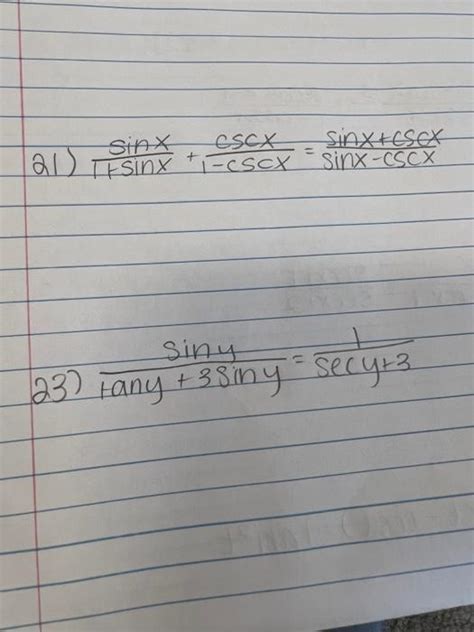 21) sinx/1+sinx + cscx/1-cscx = sinx+cscx/sinx-cscx
23) siny/tany+3siny = 1/secy+3